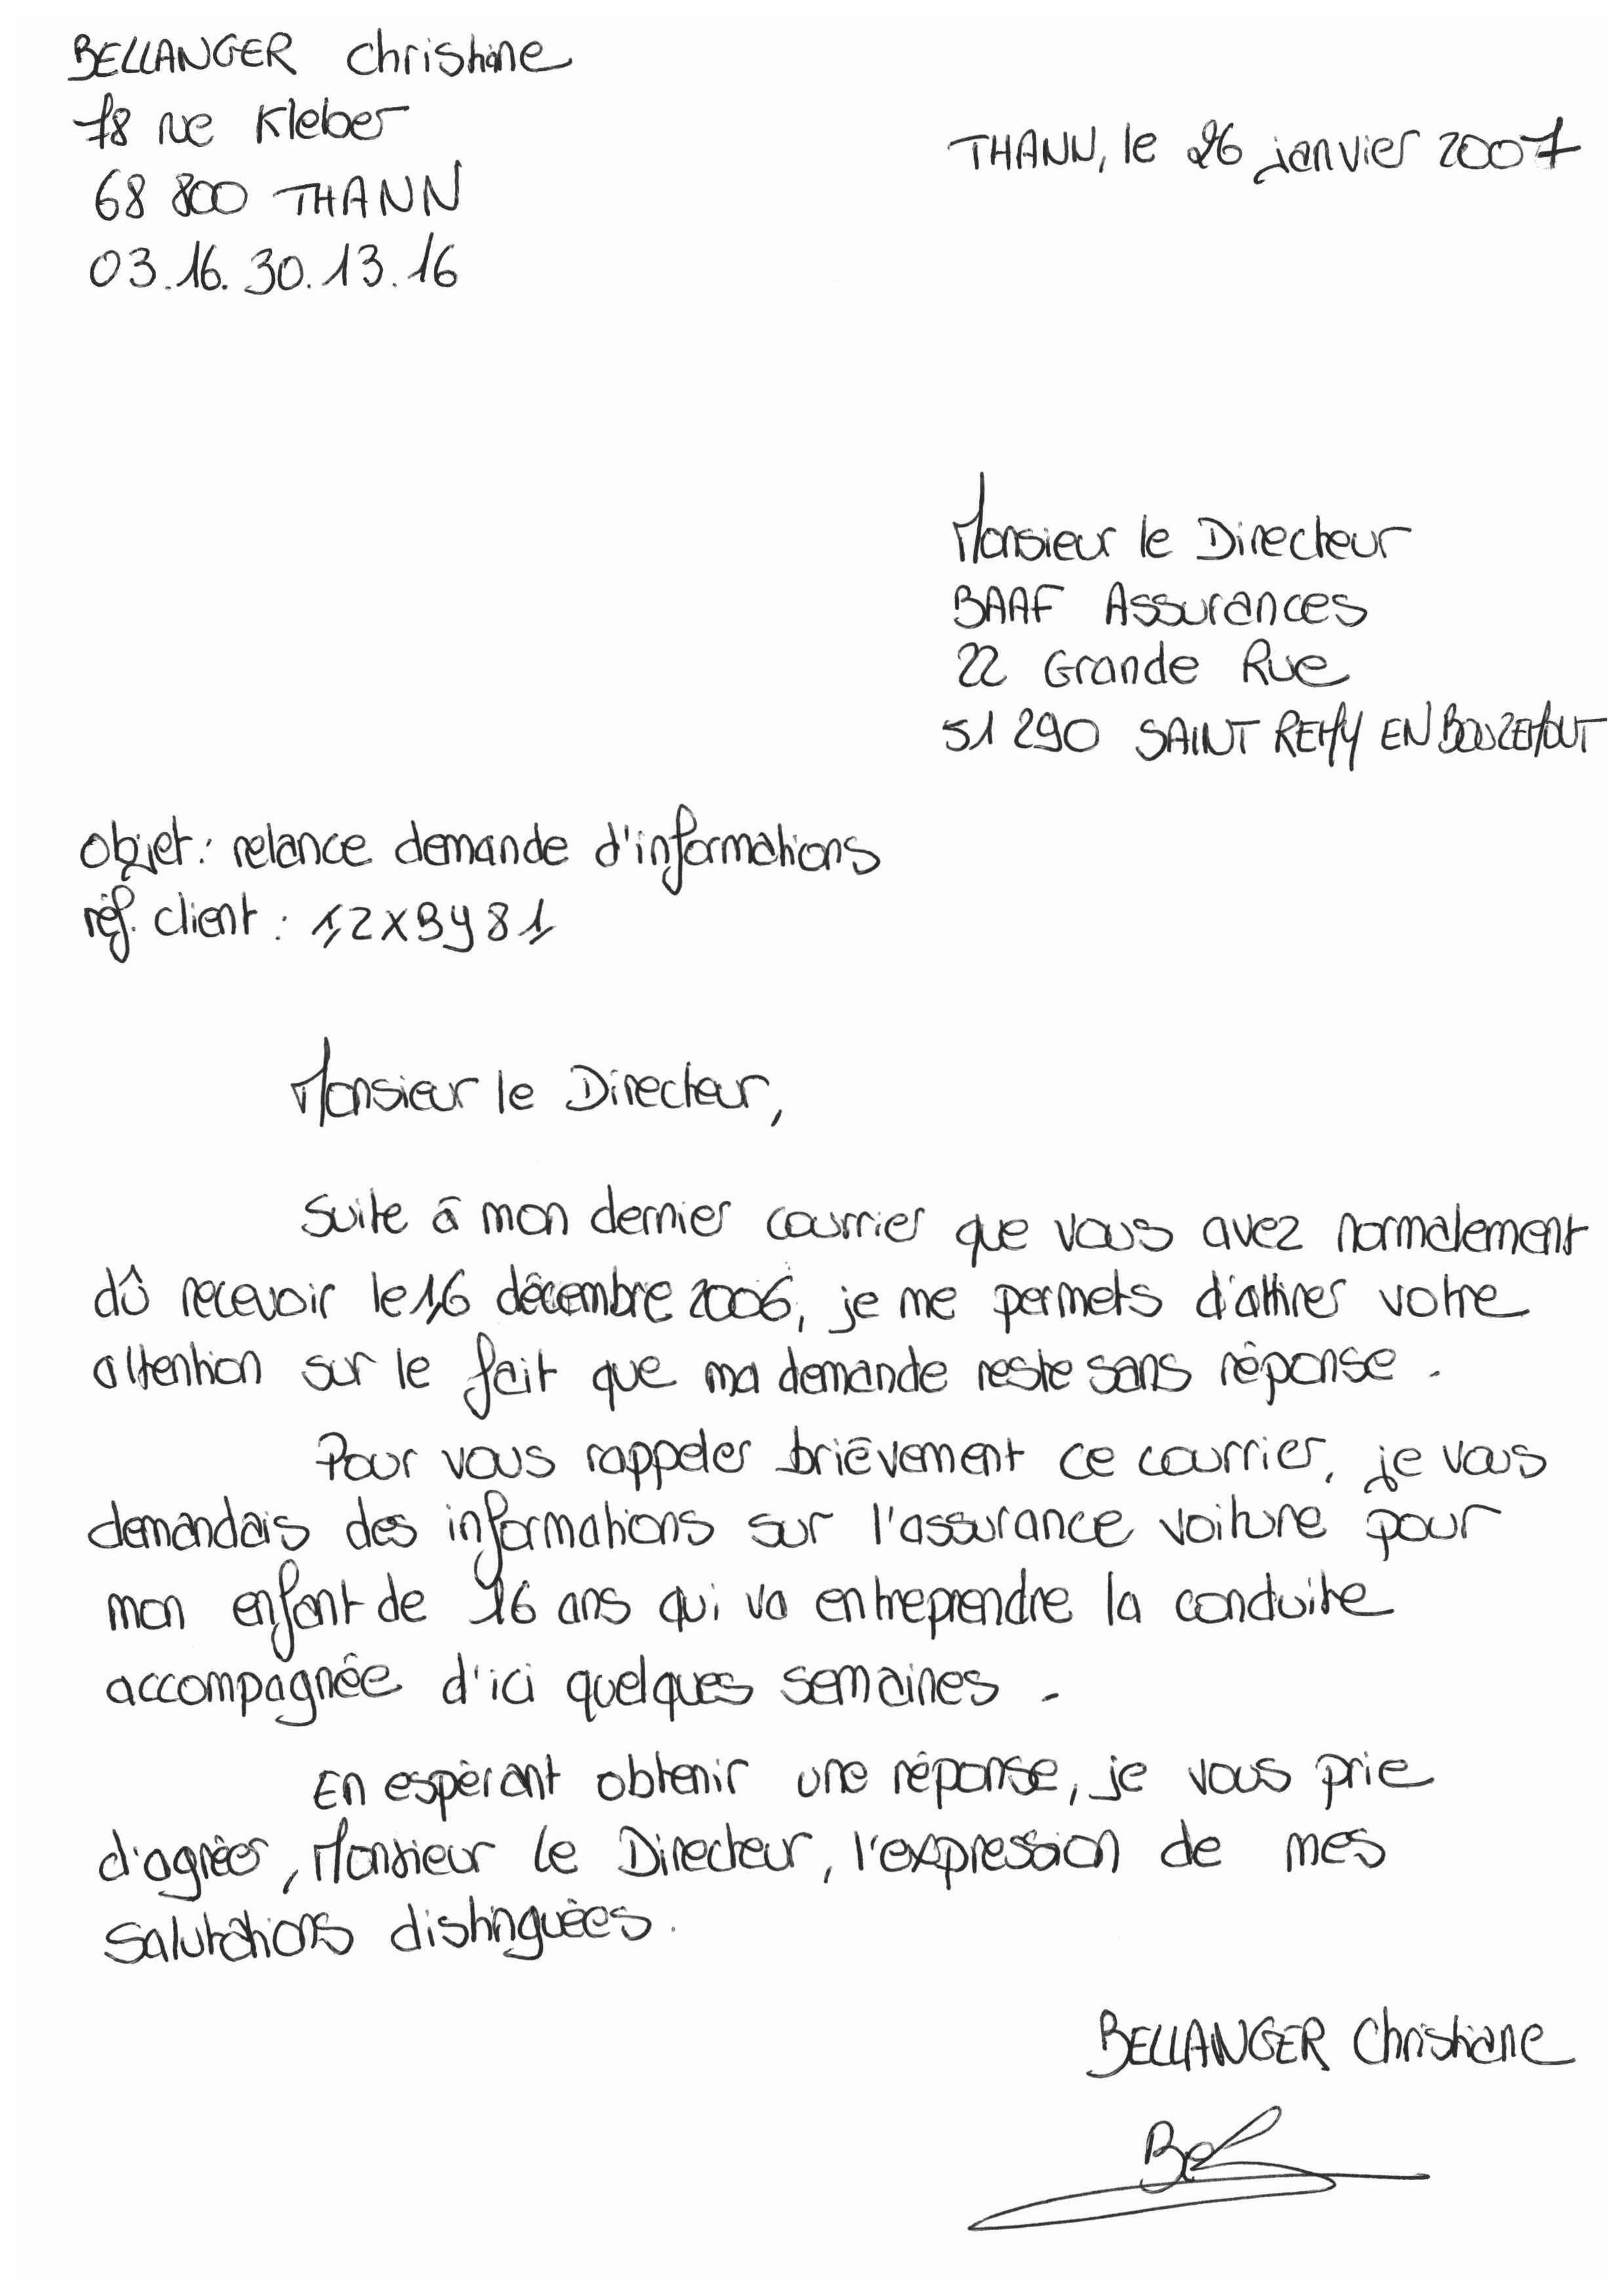 BELLANGER Christiane
78 rue Kleber
68 800 THANN
03.16.30.13.16
THANN, le 26 janvier 2007
Monsieur le Directeur
BAAF Assurances
22 Grande Rue
51 290 SAINT REMY EN BOUZEMONT
objet : relance demande d'informations
réf. client : 12XBY81
Monsieur le Directeur,
Suite à mon dernier courrier que vous avez normalement
dû recevoir le 16 décembre 2006, je me permets d'attirer votre
attention sur le fait que ma demande reste sans réponse.
Pour vous rappeler brièvement ce courrier, je vous
demandais des informations sur l'assurance voiture pour
mon enfant de 16 ans qui va entreprendre la conduite
accompagnée d'ici quelques semaines.
En espérant obtenir une réponse, je vous prie
d'agréer, Monsieur le Directeur, l'expression de mes
salutations distinguées.
BELLANGER Christiane
Bel